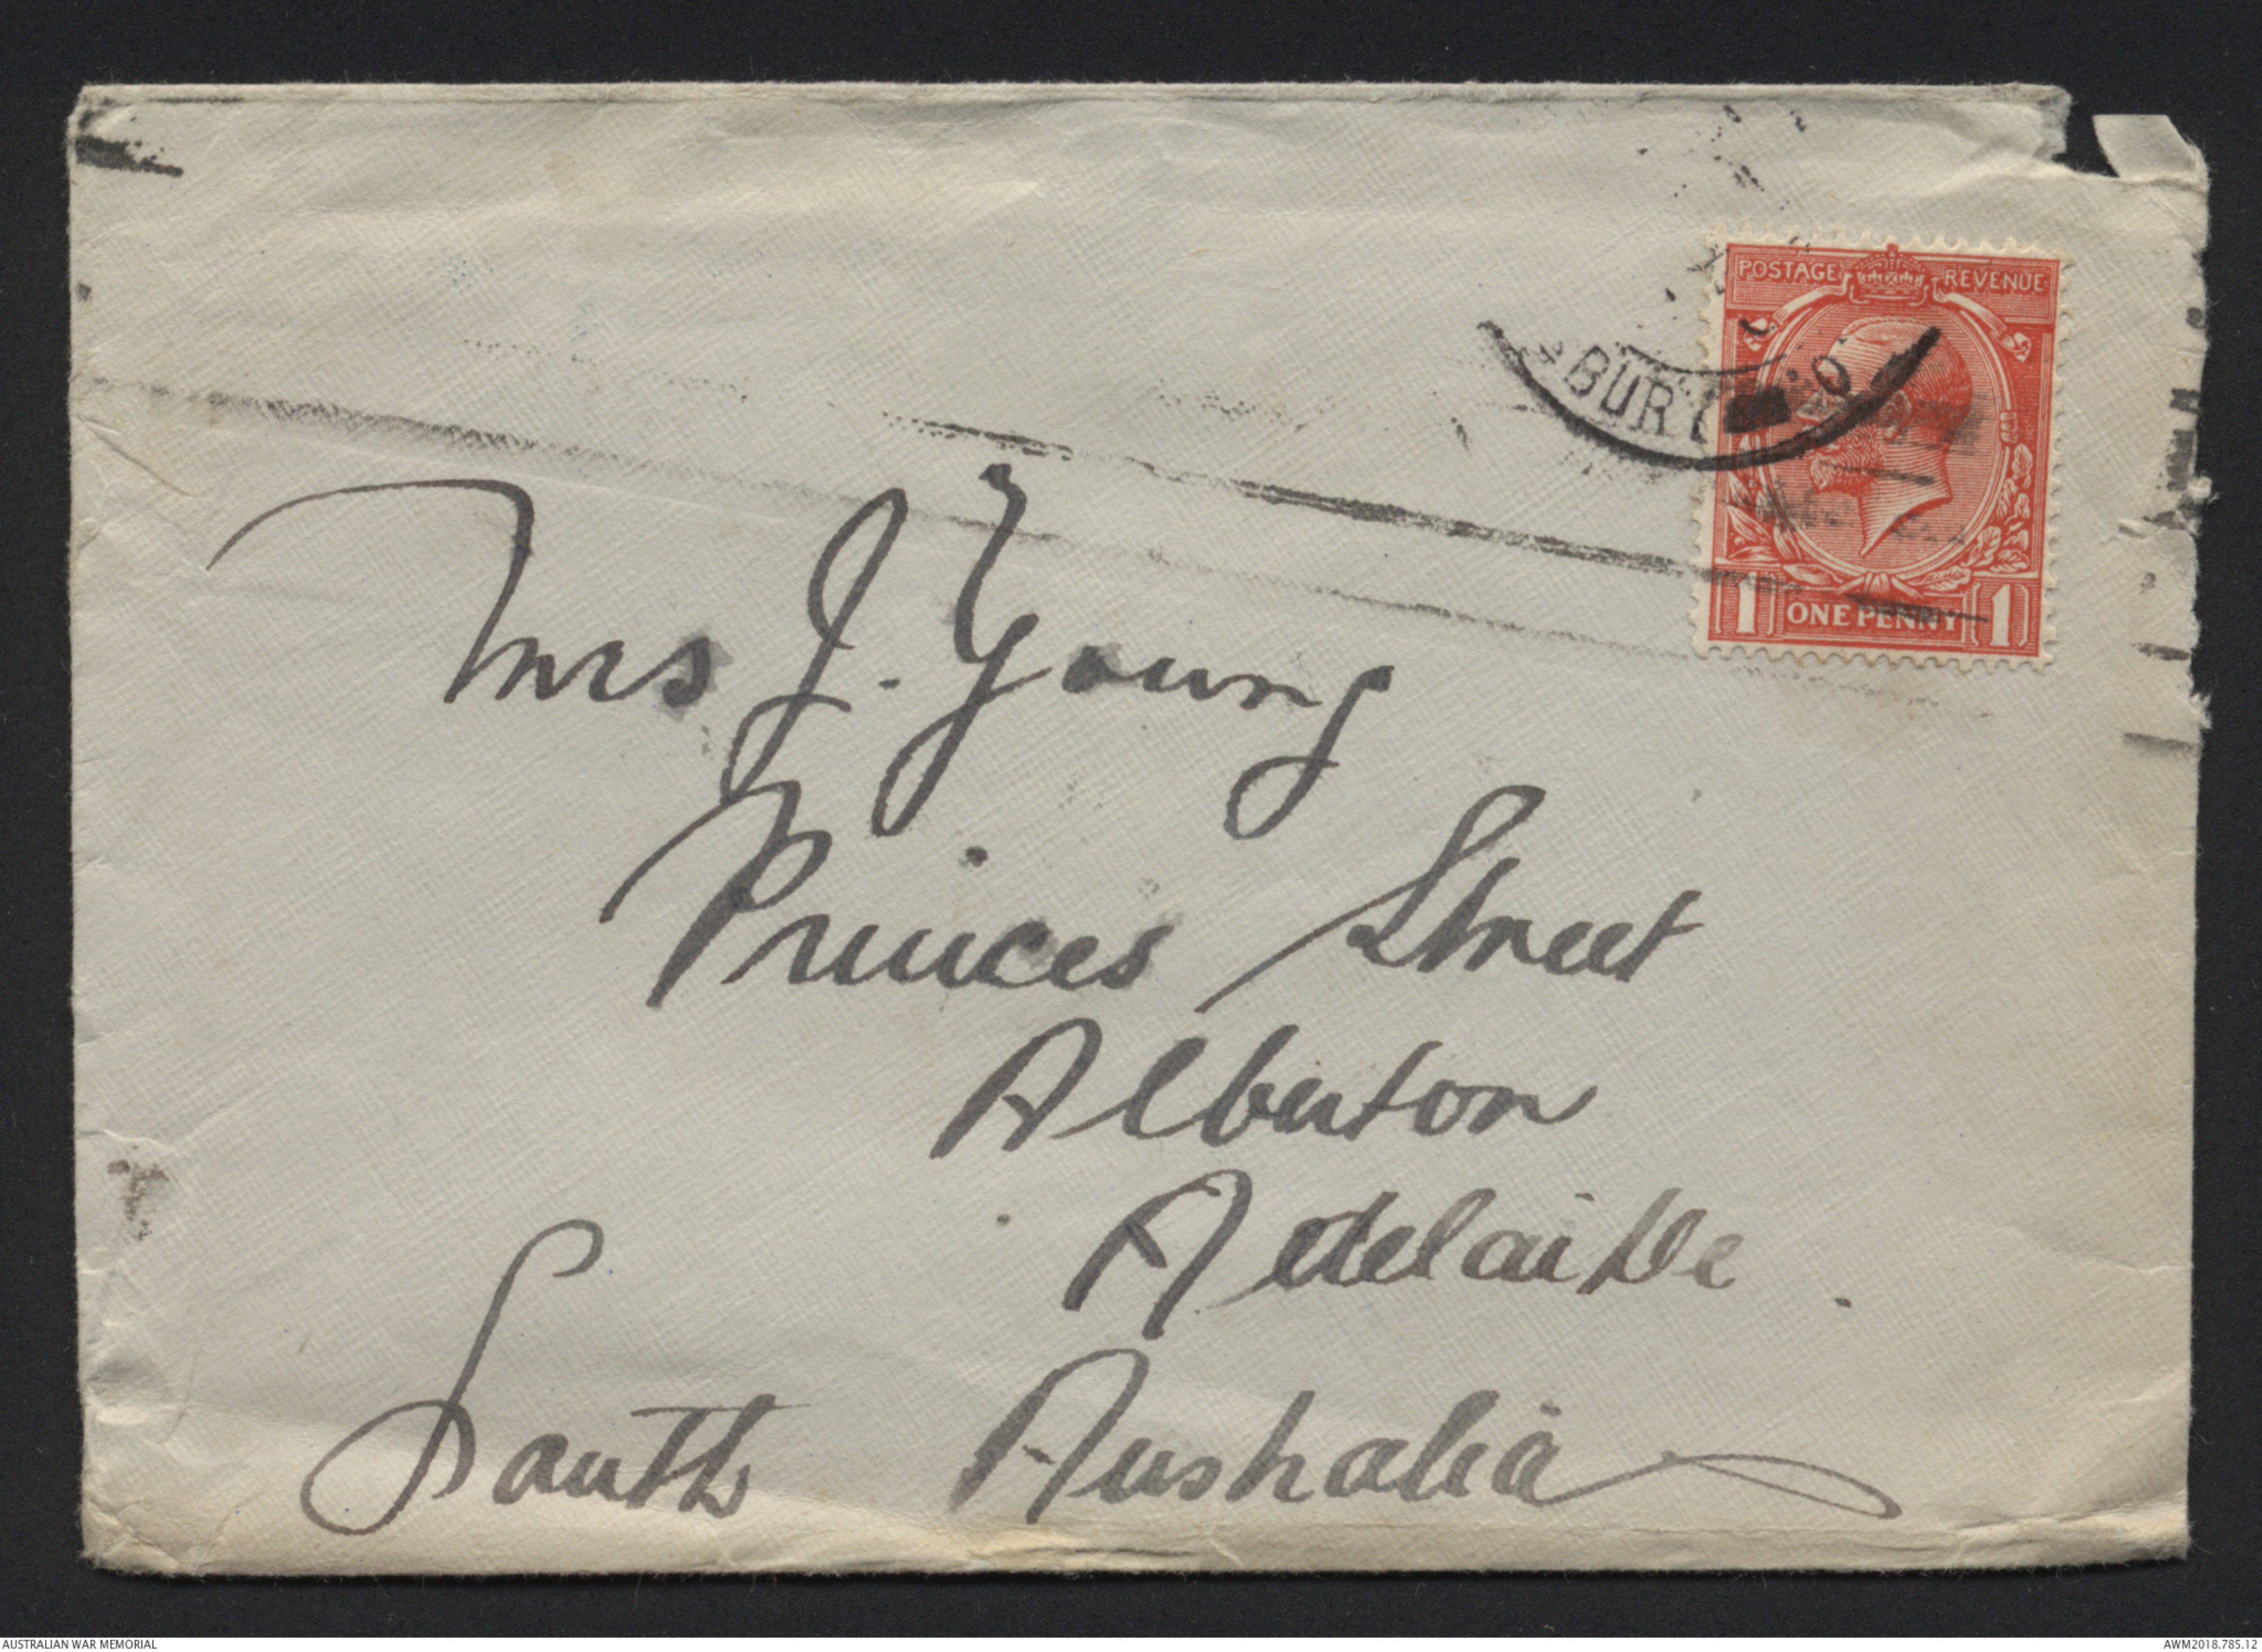 POSTAGE REVENUE
1 ONE PENNY 1
Mrs J. Young
Princes Street
Alberton
Adelaide.
South Australia
AUSTRALIAN WAR MEMORIAL
AWM2018.785.12